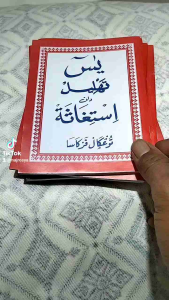 يسٓ
تهليل
دان
إستغاثة
توڠݢال ڤركاسا
TikTok